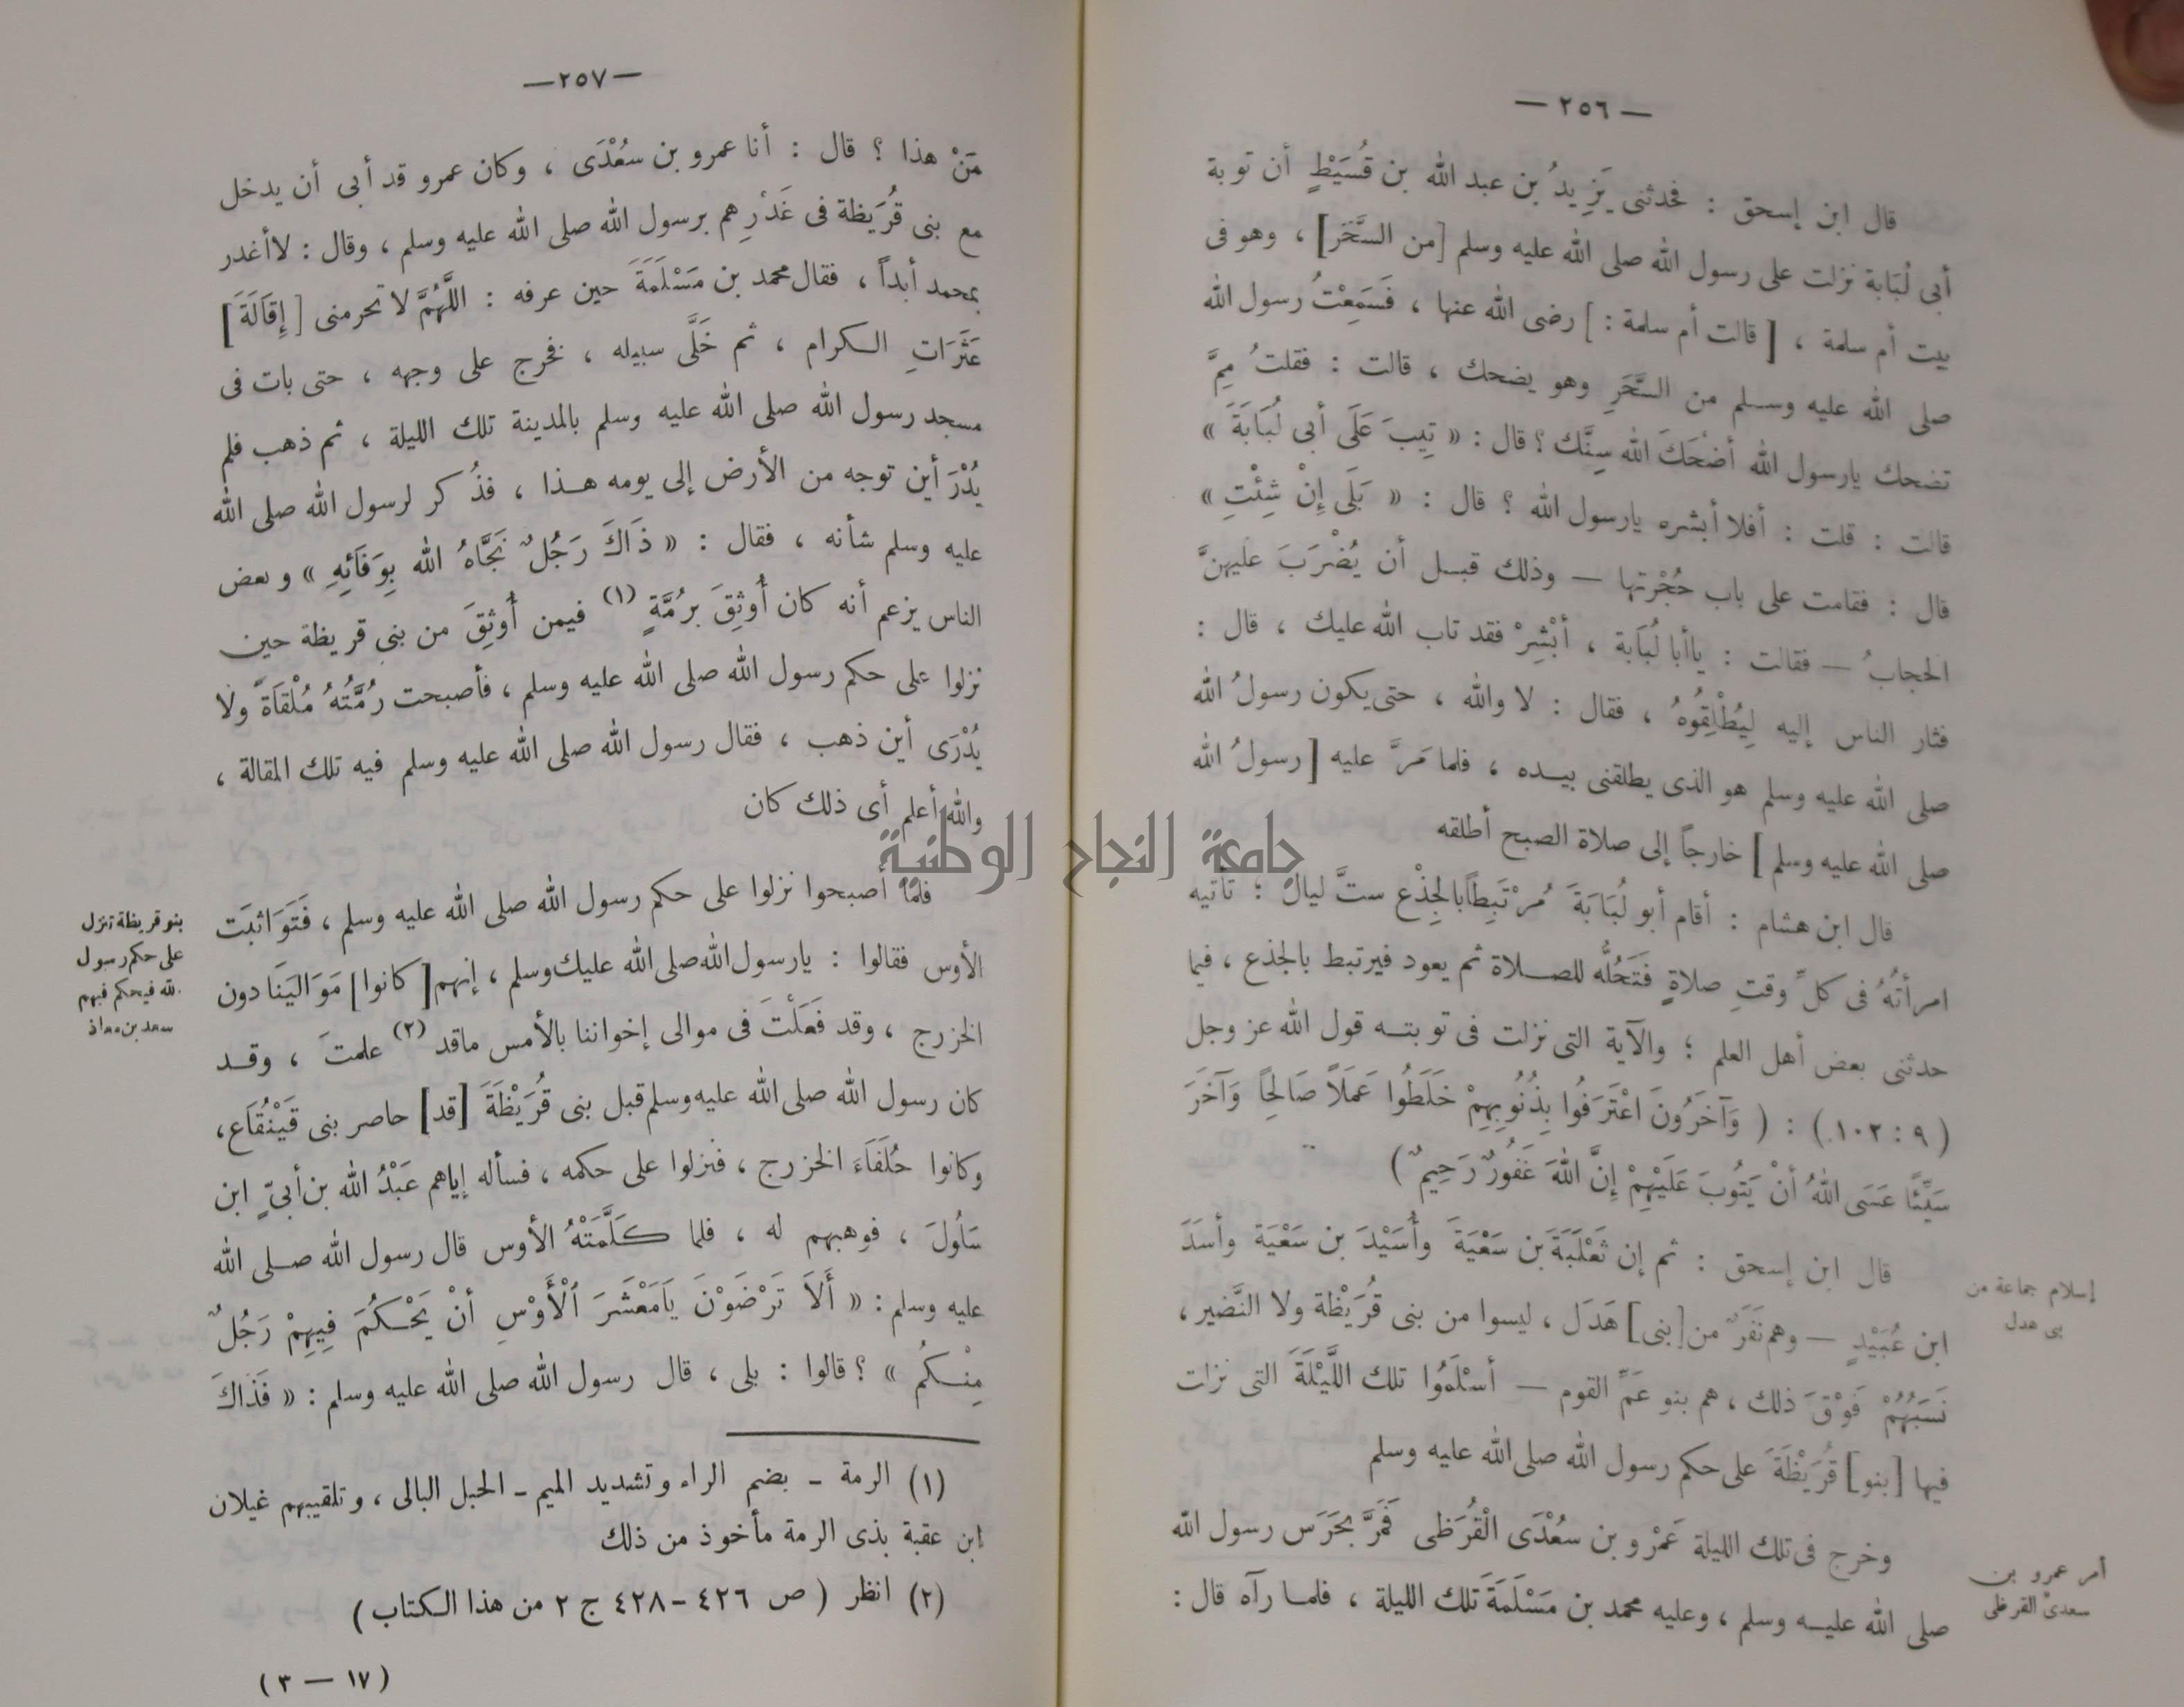 — ٢٥٦ —
قال ابن إسحق : فحدثنى يَزِيدُ بن عبد الله بن قُسَيْطٍ أن توبة
أبى لُبَابة نزلت على رسول الله صلى الله عليه وسلم [من السَّحَر] ، وهو فى
بيت أم سلمة ، [ قالت أم سلمة : ] رضى الله عنها ، فَسَمِعْتُ رسول الله
صلى الله عليه وسلم من السَّحَرِ وهو يضحك ، قالت : فقلتُ مِمَّ
تضحك يارسول الله أضْحَكَ الله سِنَّك ؟ قال : « تِيبَ عَلَى أبى لُبَابَةَ »
قالت : قلت : أفلا أبشره يارسول الله ؟ قال : « بَلَى إِنْ شِئْتِ »
قال : فقامت على باب حُجْرتها — وذلك قبل أن يُضْرَبَ عليهنَّ
الحجابُ — فقالت : ياأبا لُبَابة ، أبْشِرْ فقد تاب الله عليك ، قال :
فثار الناس إليه لِيُطْلِقُوهُ ، فقال : لا والله ، حتى يكون رسولُ الله
صلى الله عليه وسلم هو الذى يطلقنى بيده ، فلما مَرَّ عليه [ رسولُ الله
صلى الله عليه وسلم ] خارجاً إلى صلاة الصبح أطلقه
قال ابن هشام : أقام أبو لُبَابَةَ مُرْتَبِطاً بالجِذْع ستَّ ليال ؛ تأتيه
امرأتُهُ فى كلِّ وقتِ صلاةٍ فَتَحُلُّه للصلاة ثم يعود فيرتبط بالجذع ، فيما
حدثنى بعض أهل العلم ؛ والآية التى نزلت فى توبته قول الله عز وجل
( ٩ : ١٠٢ ) : ( وَآخَرُونَ اعْتَرَفُوا بِذُنُوبِهِمْ خَلَطُوا عَمَلاً صَالِحًا وَآخَرَ
سَيِّئًا عَسَى اللهُ أنْ يَتُوبَ عَلَيْهِمْ إِنَّ اللهَ غَفُورٌ رَحِيمٌ )
قال ابن إسحق : ثم إن ثَعْلَبَةَ بن سَعْيَةَ وأُسَيْدَ بن سَعْيَة وأسَدَ
ابن عُبَيْدٍ — وهم نَفَرٌ من [بنى] هَدَل ، ليسوا من بنى قُرَيْظة ولا النَّضير ،
نَسَبُهُمْ فَوْقَ ذلك ، هم بنو عَمِّ القوم — أسْلَمُوا تلك اللَّيْلَةَ التى نزلت
فيها [بنو] قُرَيْظَةَ على حكم رسول الله صلى الله عليه وسلم
وخرج فى تلك الليلة عَمْرو بن سعْدَى الْقُرَظى فَمَرَّ بحَرَس رسول الله
صلى الله عليه وسلم ، وعليه محمد بن مَسْلَمَةَ تلك الليلة ، فلما رآه قال :
إسلام جماعة من
بنى هدل
أمر عمرو بن
سعدى القرظى
— ٢٥٧ —
مَنْ هذا ؟ قال : أنا عمرو بن سعُدْىَ ، وكان عمرو قد أبى أن يدخل
مع بنى قُرَيظة فى غَدْرِهم برسول الله صلى الله عليه وسلم ، وقال : لاأغدر
بمحمد أبداً ، فقال محمد بن مَسْلَمَةَ حين عرفه : اللَّهُمَّ لا تحرمنى [إِقَالَةَ]
عَثَرَاتِ الكرام ، ثم خَلَّى سبيله ، فخرج على وجهه ، حتى بات فى
مسجد رسول الله صلى الله عليه وسلم بالمدينة تلك الليلة ، ثم ذهب فلم
يُدْرَ أين توجه من الأرض إلى يومه هذا ، فذُكر لرسول الله صلى الله
عليه وسلم شأنه ، فقال : « ذَاكَ رَجُلٌ نَجَّاهُ الله بِوَفَائِهِ » وبعض
الناس يزعم أنه كان أُوثِقَ برُمَّةٍ (١) فيمن أُوثِقَ من بنى قريظة حين
نزلوا على حكم رسول الله صلى الله عليه وسلم ، فأصبحت رُمَّتُهُ مُلْقَاةً ولا
يُدْرَى أين ذهب ، فقال رسول الله صلى الله عليه وسلم فيه تلك المقالة ،
والله أعلم أى ذلك كان
فلمَّا أصبحوا نزلوا على حكم رسول الله صلى الله عليه وسلم ، فَتَوَاثَبَت
الأوس فقالوا : يارسول الله صلى الله عليك وسلم ، إنهم [كانوا] مَوَالِيَنَا دون
الخزرج ، وقد فَعَلْتَ فى موالى إخواننا بالأمس ماقد (٢) علمتَ ، وقد
كان رسول الله صلى الله عليه وسلم قبل بنى قُرَيْظَةَ [قد] حاصر بنى قَيْنُقَاع ،
وكانوا حُلَفَاءَ الخزرج ، فنزلوا على حكمه ، فسأله إياهم عَبْدُ الله بن أبىٍّ ابن
سَلُولَ ، فوهبهم له ، فلما كَلَّمَتْهُ الأوس قال رسول الله صلى الله
عليه وسلم : « أَلاَ تَرْضَوْنَ يَامَعْشَرَ الْأَوْسِ أنْ يَحْكُمَ فِيهِمْ رَجُلٌ
مِنْكُمُ » ؟ قالوا : بلى ، قال رسول الله صلى الله عليه وسلم : « فَذَاكَ
بنو قريظة تنزل
على حكم رسول
الله فيحكم فيهم
سعد بن معاذ
(١) الرمة - بضم الراء وتشديد الميم - الحبل البالى ، وتلقيبهم غيلان
ابن عقبة بذى الرمة مأخوذ من ذلك
(٢) انظر ( ص ٤٢٦ – ٤٢٨ ج ٢ من هذا الكتاب )
( ١٧ — ٣ )
جامعة النجاح الوطنية